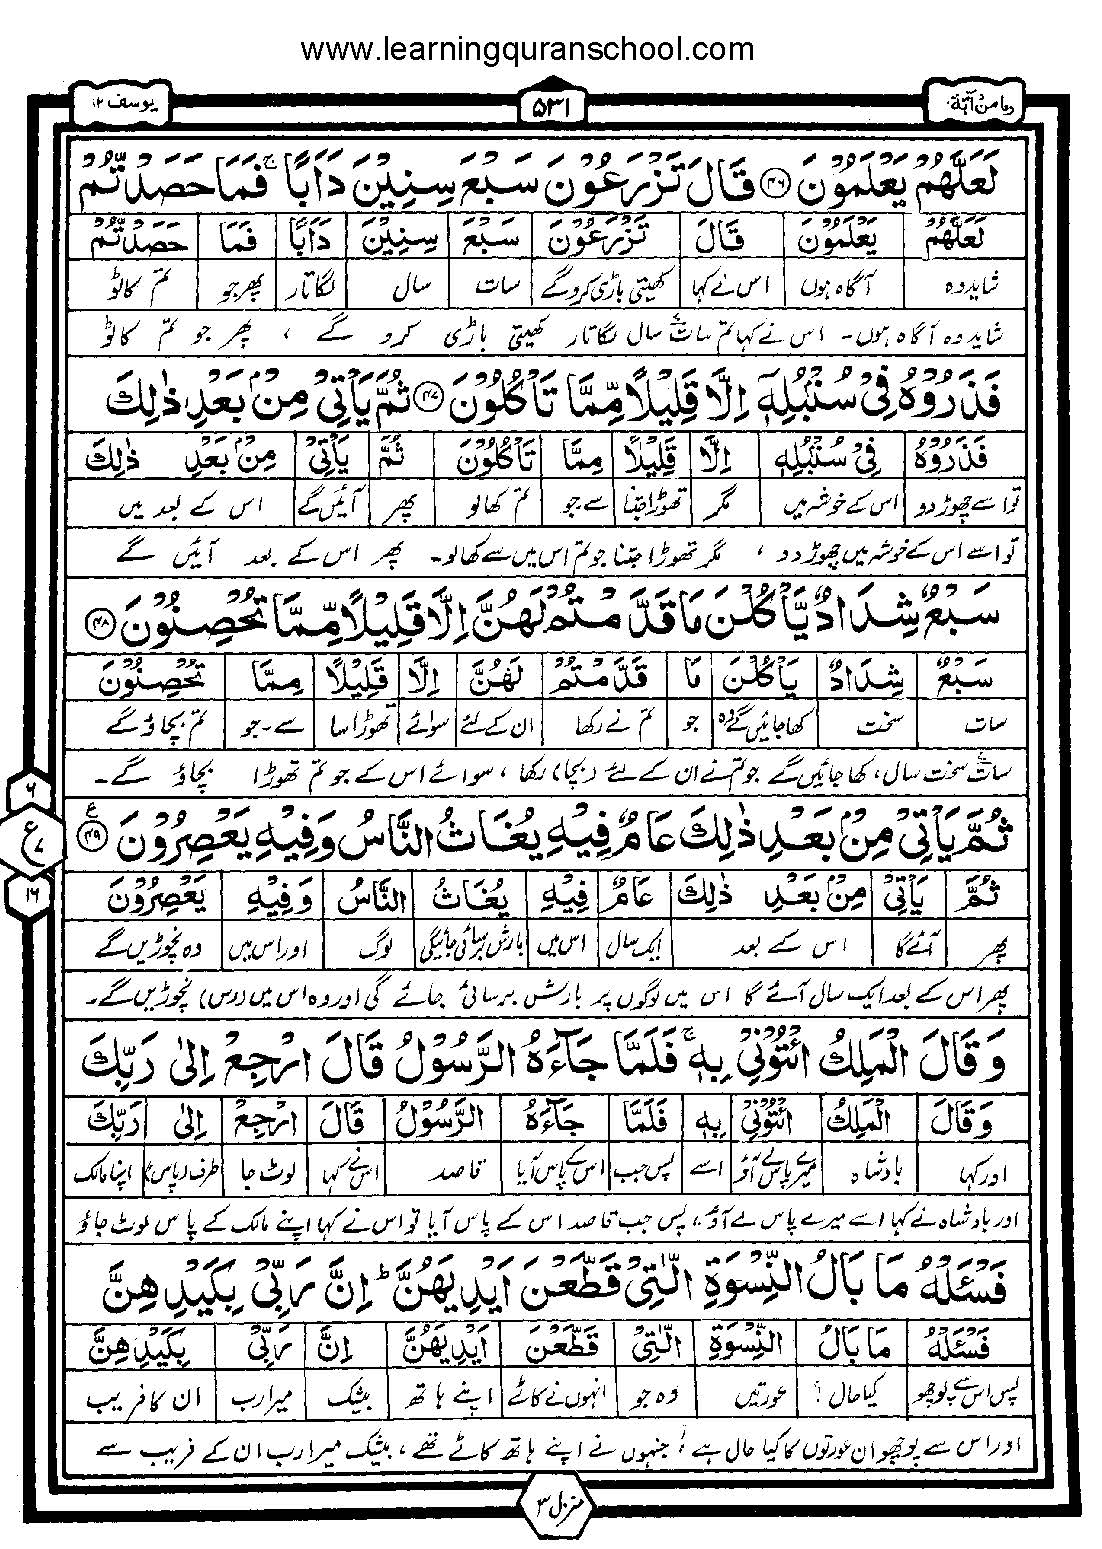 www.learningquranschool.com
وما من دآبة ۱۲
۵۳۱
یوسف ۱۲
لَعَلَّهُمْ يَعْلَمُوْنَ ﴿۴۶﴾ قَالَ تَزْرَعُوْنَ سَبْعَ سِنِيْنَ دَاَبًا ۚ فَمَا حَصَدْتُّمْ
لَعَلَّهُمْ يَعْلَمُوْنَ قَالَ تَزْرَعُوْنَ سَبْعَ سِنِيْنَ دَاَبًا فَمَا حَصَدْتُّمْ
شاید وہ آگاہ ہوں اس نے کہا کھیتی باڑی کرو گے سات سال لگاتار پھر جو تم کاٹو
شاید وہ آگاہ ہوں۔ اس نے کہا تم سات سال لگاتار کھیتی باڑی کرو گے ، پھر جو تم کاٹو
فَذَرُوْهُ فِيْ سُنْۢبُلِهٖٓ اِلَّا قَلِيْلًا مِّمَّا تَاْكُلُوْنَ ﴿۴۷﴾ ثُمَّ يَاْتِيْ مِنْۢ بَعْدِ ذٰلِكَ
فَذَرُوْهُ فِيْ سُنْۢبُلِهٖٓ اِلَّا قَلِيْلًا مِّمَّا تَاْكُلُوْنَ ثُمَّ يَاْتِيْ مِنْۢ بَعْدِ ذٰلِكَ
تو اسے چھوڑ دو اس کے خوشہ میں مگر تھوڑا جتنا سے جو تم کھالو پھر آئیں گے اس کے بعد میں
تو اسے اس کے خوشہ میں چھوڑ دو ، مگر تھوڑا جتنا جو تم اس میں سے کھالو۔ پھر اس کے بعد آئیں گے
سَبْعٌ شِدَادٌ يَّاْكُلْنَ مَا قَدَّمْتُمْ لَهُنَّ اِلَّا قَلِيْلًا مِّمَّا تُحْصِنُوْنَ ﴿۴۸﴾
سَبْعٌ شِدَادٌ يَاْكُلْنَ مَا قَدَّمْتُمْ لَهُنَّ اِلَّا قَلِيْلًا مِمَّا تُحْصِنُوْنَ
سات سخت کھا جائیں گے وہ جو تم نے رکھا ان کے لئے سوائے تھوڑا سا سے۔جو تم بچاؤ گے
سات سخت سال، کھا جائیں گے جو تم نے ان کے لئے (بچا) رکھا ، سوائے اس کے جو تم تھوڑا بچاؤ گے۔
۶
ع
۷
۱۶
ثُمَّ يَاْتِيْ مِنْۢ بَعْدِ ذٰلِكَ عَامٌ فِيْهِ يُغَاثُ النَّاسُ وَفِيْهِ يَعْصِرُوْنَ ﴿۴۹﴾ ع
ثُمَّ يَاْتِيْ مِنْۢ بَعْدِ ذٰلِكَ عَامٌ فِيْهِ يُغَاثُ النَّاسُ وَفِيْهِ يَعْصِرُوْنَ
پھر آئے گا اس کے بعد ایک سال اس میں بارش برسائی جائیگی لوگ اور اس میں وہ نچوڑیں گے
پھر اس کے بعد ایک سال آئے گا اس میں لوگوں پر بارش برسائی جائے گی اور وہ اس میں (رس) نچوڑیں گے۔
وَقَالَ الْمَلِكُ ائْتُوْنِيْ بِهٖ ۚ فَلَمَّا جَآءَهُ الرَّسُوْلُ قَالَ ارْجِعْ اِلٰى رَبِّكَ
وَقَالَ الْمَلِكُ ائْتُوْنِيْ بِهٖ فَلَمَّا جَآءَهُ الرَّسُوْلُ قَالَ ارْجِعْ اِلٰى رَبِّكَ
اور کہا بادشاہ میرے پاس لے آؤ اسے پس جب اس کے پاس آیا قاصد اس نے کہا لوٹ جا طرف (پاس) اپنا مالک
اور بادشاہ نے کہا اسے میرے پاس لے آؤ، پس جب قاصد اس کے پاس آیا تو اس نے کہا اپنے مالک کے پاس لوٹ جاؤ
فَسْئَلْهُ مَا بَالُ النِّسْوَةِ الّٰتِيْ قَطَّعْنَ اَيْدِيَهُنَّ ؕ اِنَّ رَبِّيْ بِكَيْدِهِنَّ
فَسْئَلْهُ مَا بَالُ النِّسْوَةِ الّٰتِيْ قَطَّعْنَ اَيْدِيَهُنَّ اِنَّ رَبِّيْ بِكَيْدِهِنَّ
پس اس سے پوچھو کیا حال ؟ عورتیں وہ جو انہوں نے کاٹے اپنے ہاتھ بیشک میرا رب ان کا فریب
اور اس سے پوچھو ان عورتوں کا کیا حال ہے ! جنہوں نے اپنے ہاتھ کاٹے تھے ، بیشک میرا رب ان کے فریب سے
منزل ۳